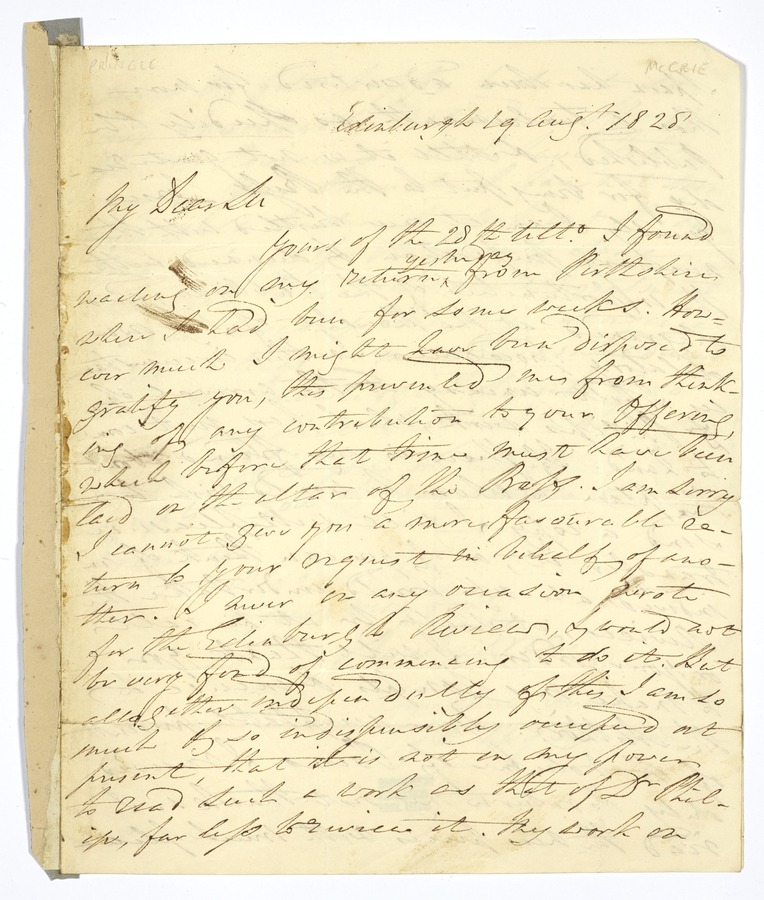 PRINGLE
McCRIE
Edinburgh 19 Augt. 1828
My Dear Sir
Yours of the 28th ulto. I found
waiting on my return yesterday from Perthshire
where I had been for some weeks. How=
ever much I might have been disposed to
gratify you, this prevented me from think-
ing of any contribution to your Offering,
which before that time must have been
laid on the altar of the Press. I am sorry
I cannot give you a more favourable re-
turn to your request in behalf of ano-
ther. I never on any occasion wrote
for the Edinburgh Review, & would not
be very fond of commencing to do it. But
altogether independently of this, I am so
much & so indispensibly occupied at
present, that it is not in my power
to read such a work as that of Dr Phil-
ip, far less to review it. My work on